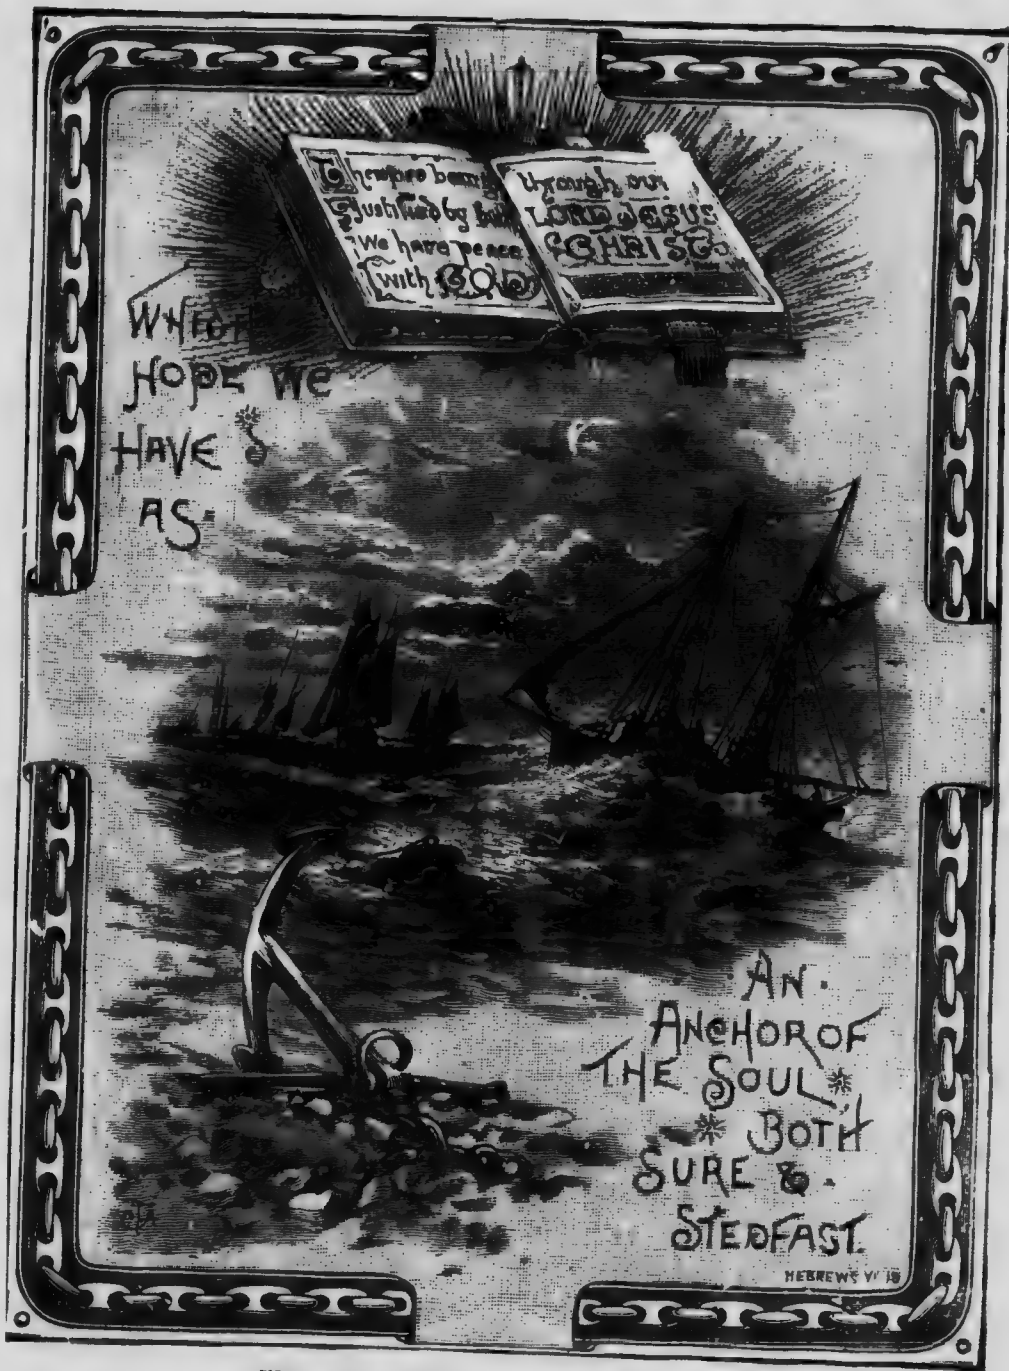 Therefore being
Justified by
We have peace
with GOD
through our
LORD JESUS
CHRIST
WHICH
HOPE WE
HAVE
AS
AN
ANCHOR OF
THE SOUL
BOTH
SURE &
STEDFAST.
HEBREWS VI